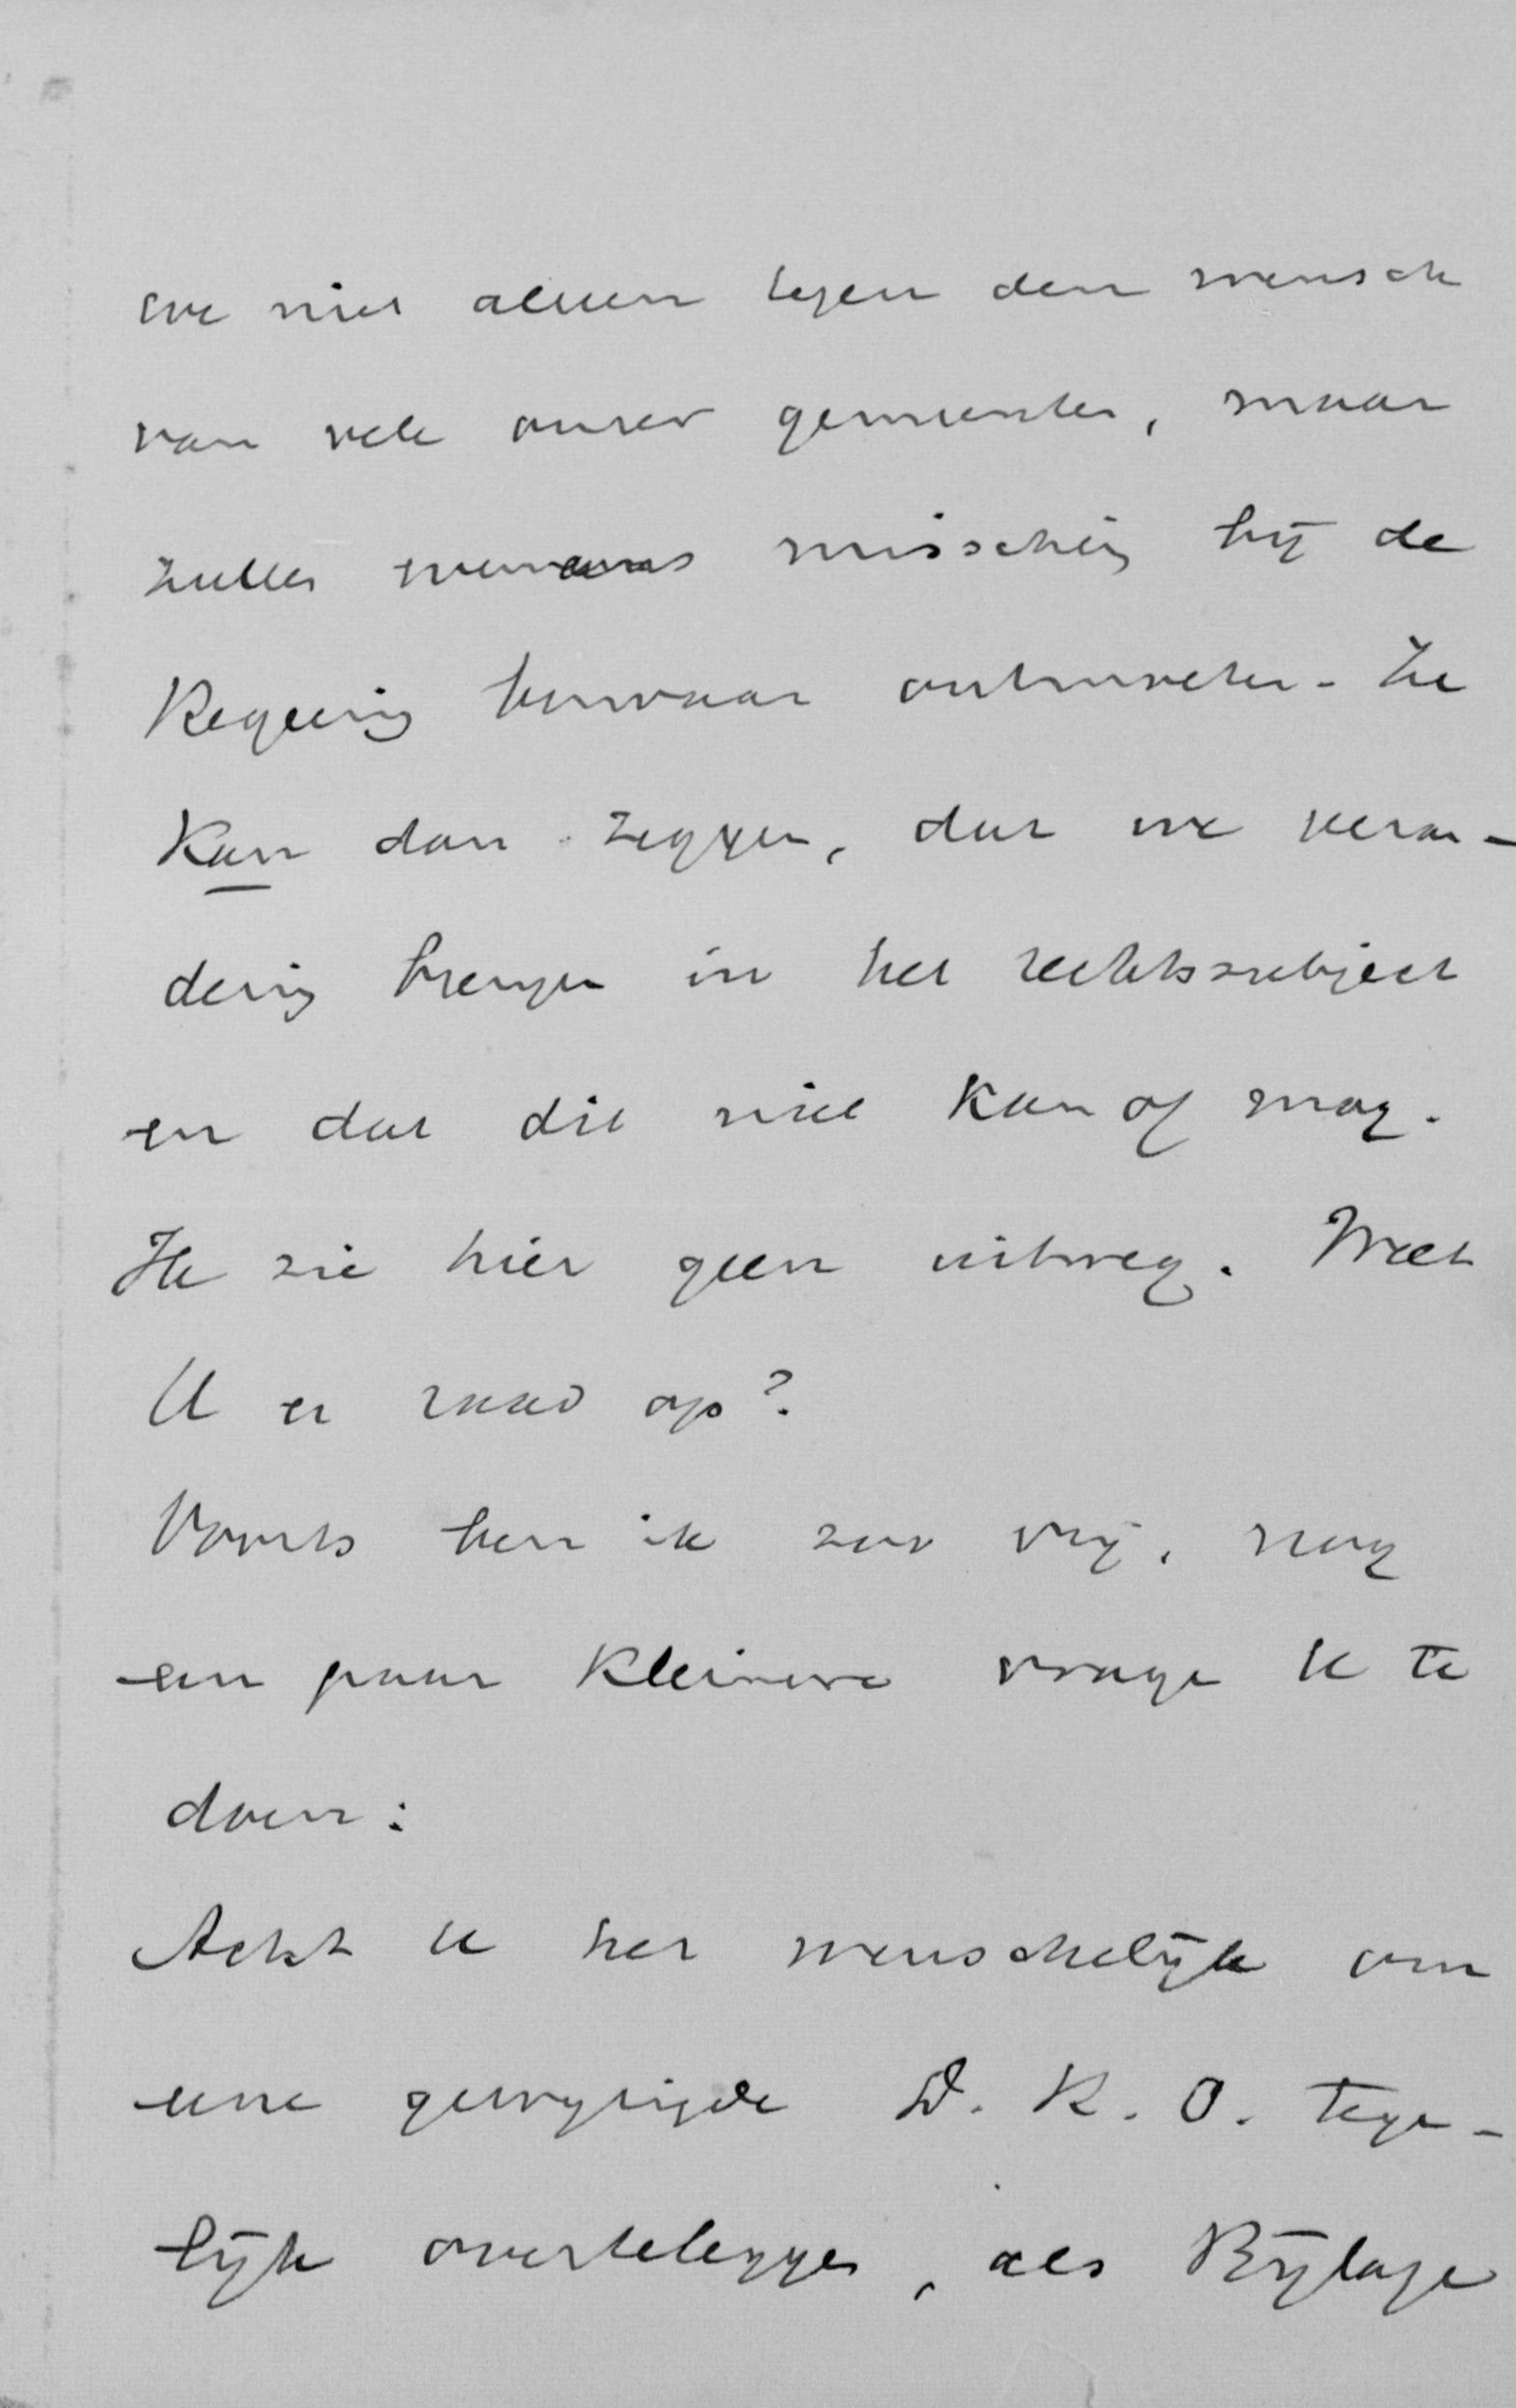 we niet alleen tegen den wensch
van vele onzer gemeenten, maar
zullen misschien bij de
Regeering bezwaar ontmoeten. Ze
kan dan zeggen, dat we veran-
dering brengen in het rechtssubject
en dat dit niet kan of mag.
Ik zie hier geen uitweg. Weet
U er raad op?
Voorts ben ik zoo vrij, nog
een paar kleinere vragen U te
doen:
Acht U het wenschelijk om
eene gewijzigde D. K. O. tege-
lijk overteleggen, als Bijlage